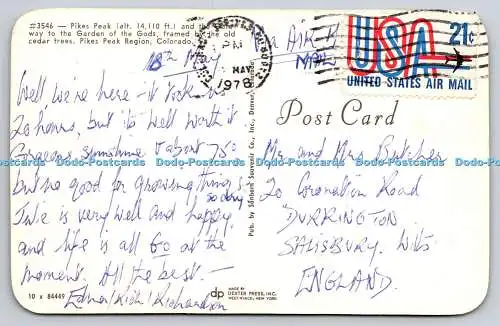 #3546 — Pikes Peak (alt. 14,110 ft.) and the
way to the Garden of the Gods, framed by the old
cedar trees. Pikes Peak Region, Colorado.
18th May
Well we're here - it took us
20 hours, but it's well worth it
Gorgeous sunshine about 75°
but no good for growing things
so dry
Julie is very well and happy
and life is all Go at the
moment. All the best. —
Edna/Rich/Richardson
10 x 84449
Pub. by Sanborn Souvenir Co., Inc., Denver,
dp
MADE BY
DEXTER PRESS, INC.
WEST NYACK, NEW YORK
PM
MAY
1978
AIR
MAIL
USA
21c
UNITED STATES AIR MAIL
Post Card
Mr and Mrs Butcher
20 Coronation Road
DURRINGTON
SALISBURY. Wilts
ENGLAND.
Dodo-Postcards Dodo-Postcards Dodo-Postcards Dodo-Postcards Dodo-Postcards